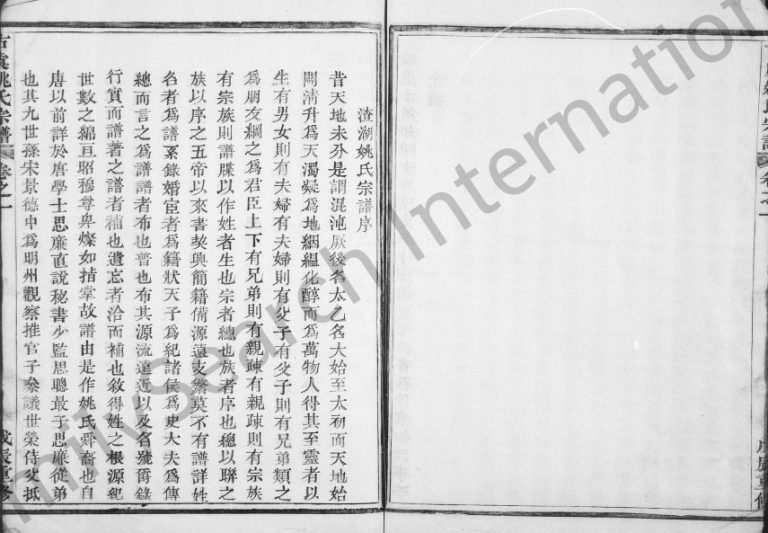 渣湖姚氏宗譜序
昔天地未分是謂混沌厥後名太乙名大始至太初而天地始
開清升爲天濁凝爲地絪縕化醇而爲萬物人得其至靈者以
生有男女則有夫婦有夫婦則有父子有父子則有兄弟類之
爲朋友綱之爲君臣上下有兄弟則有親疎有親疎則有宗族
有宗族則譜牒以作姓者生也宗者總也族者序也總以聯之
族以序之五帝以來書契典簡籍備源遠支繁莫不有譜詳姓
名者爲譜系錄婚宦者爲籍狀天子爲紀諸侯爲史大夫爲傳
總而言之爲譜譜者布也普也布其源流遠近以及名號爵錄
行實而譜著之譜者補也遺忘者洽而補也敘得姓之根源紀
世數之綿亘昭穆尊卑燦如指掌故譜由是作姚氏舜裔也自
唐以前詳於唐學士思廉直說秘書少監思聰最子思廉從弟
也其九世孫宋景德中爲明州觀察推官子參議世榮侍父抵
古虞姚氏宗譜
卷之一
戊辰重修
FamilySearch International